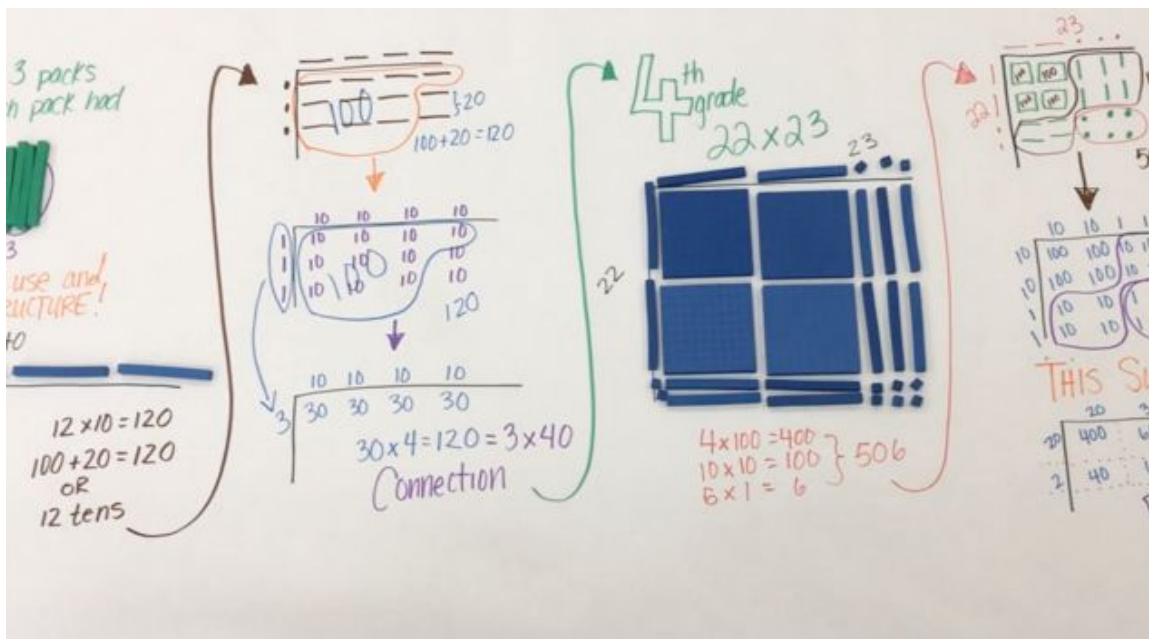 3 packs
pack had
3
use and
12 x 10 = 120
100 + 20 = 120
OR
12 tens
100
}20
100 + 20 = 120
10 10 10 10
1 10 10 10 10
1 10 10 10 10
1 10 10 10 10
100
120
10 10 10 10
3 30 30 30 30
30 x 4 = 120 = 3 x 40
Connection
4th
grade
22 x 23
23
22
4 x 100 = 400
10 x 10 = 100 } 506
6 x 1 = 6
23
22
100 100
100 100
10 10 1
10 100 100 10
10 100 100 10
1 10 10 1
1 10 10 1
THIS
20
20 400
2 40